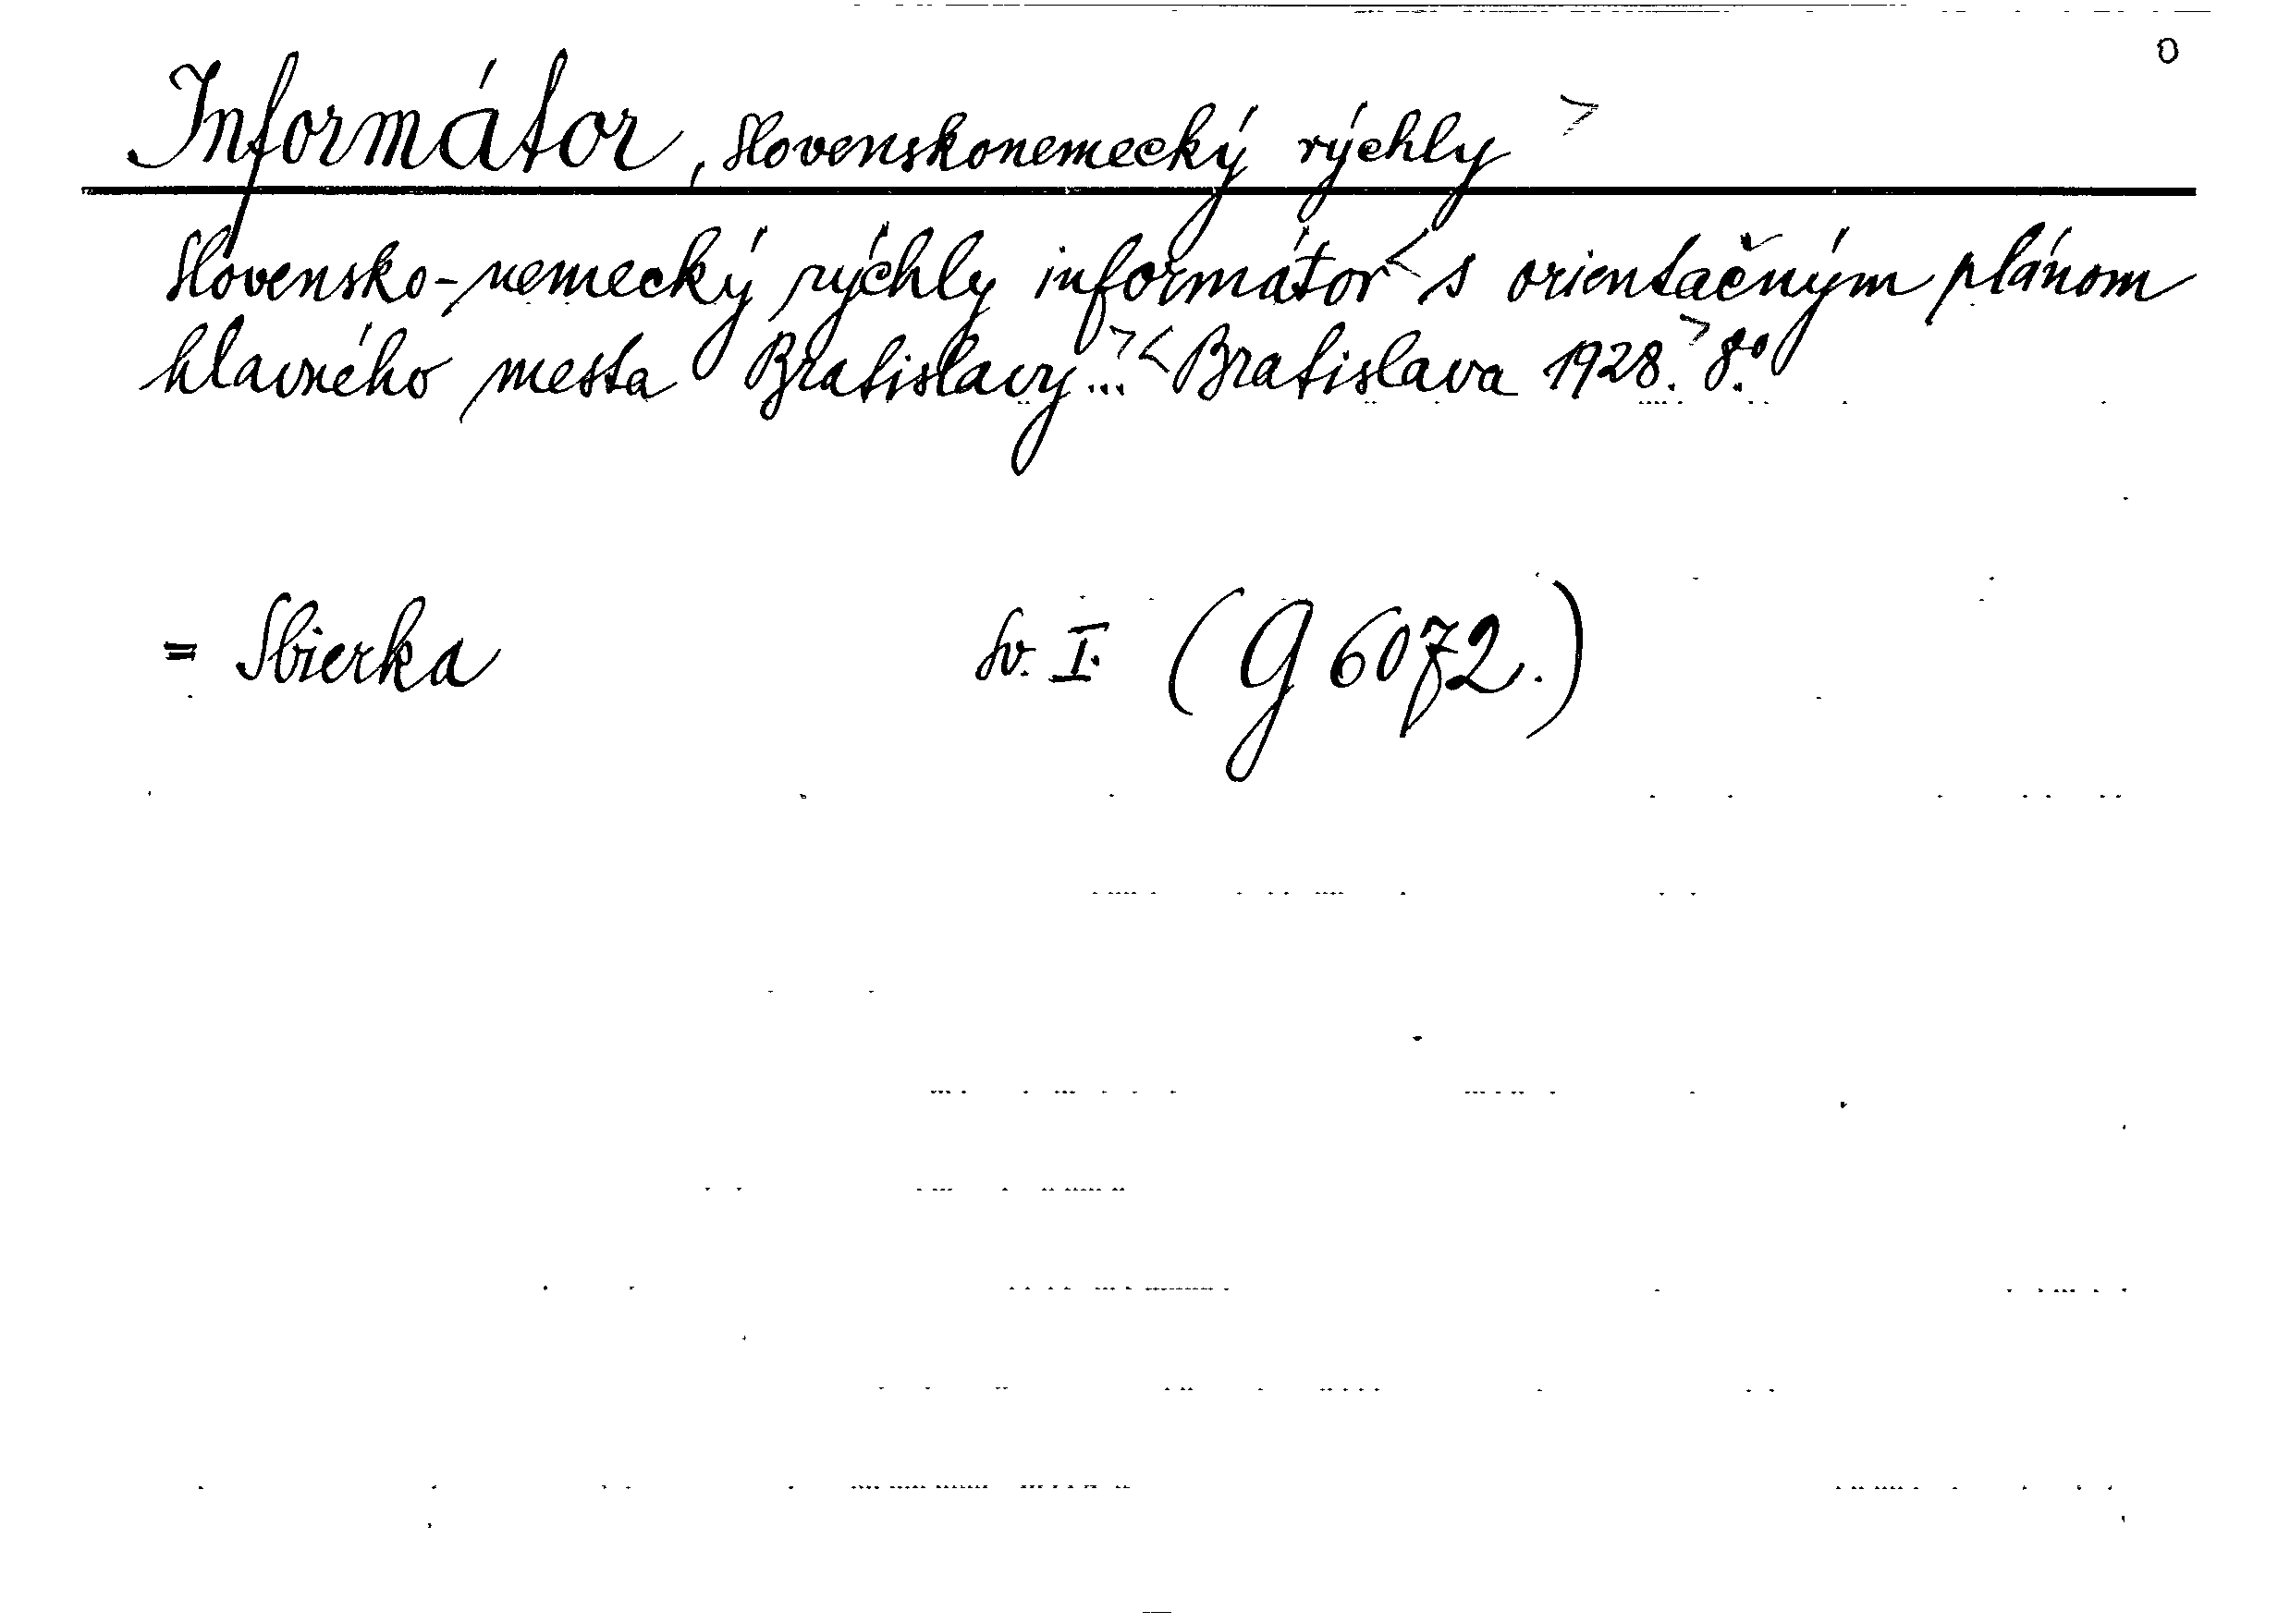 0
Informátor, slovenskonemecký rýchly >
Slovensko-nemecký rýchly informátor < s orientačným plánom
hlavného mesta Bratislavy... > < Bratislava 1928. > 8.º
= Sbierka sv. I. (G 6072.)